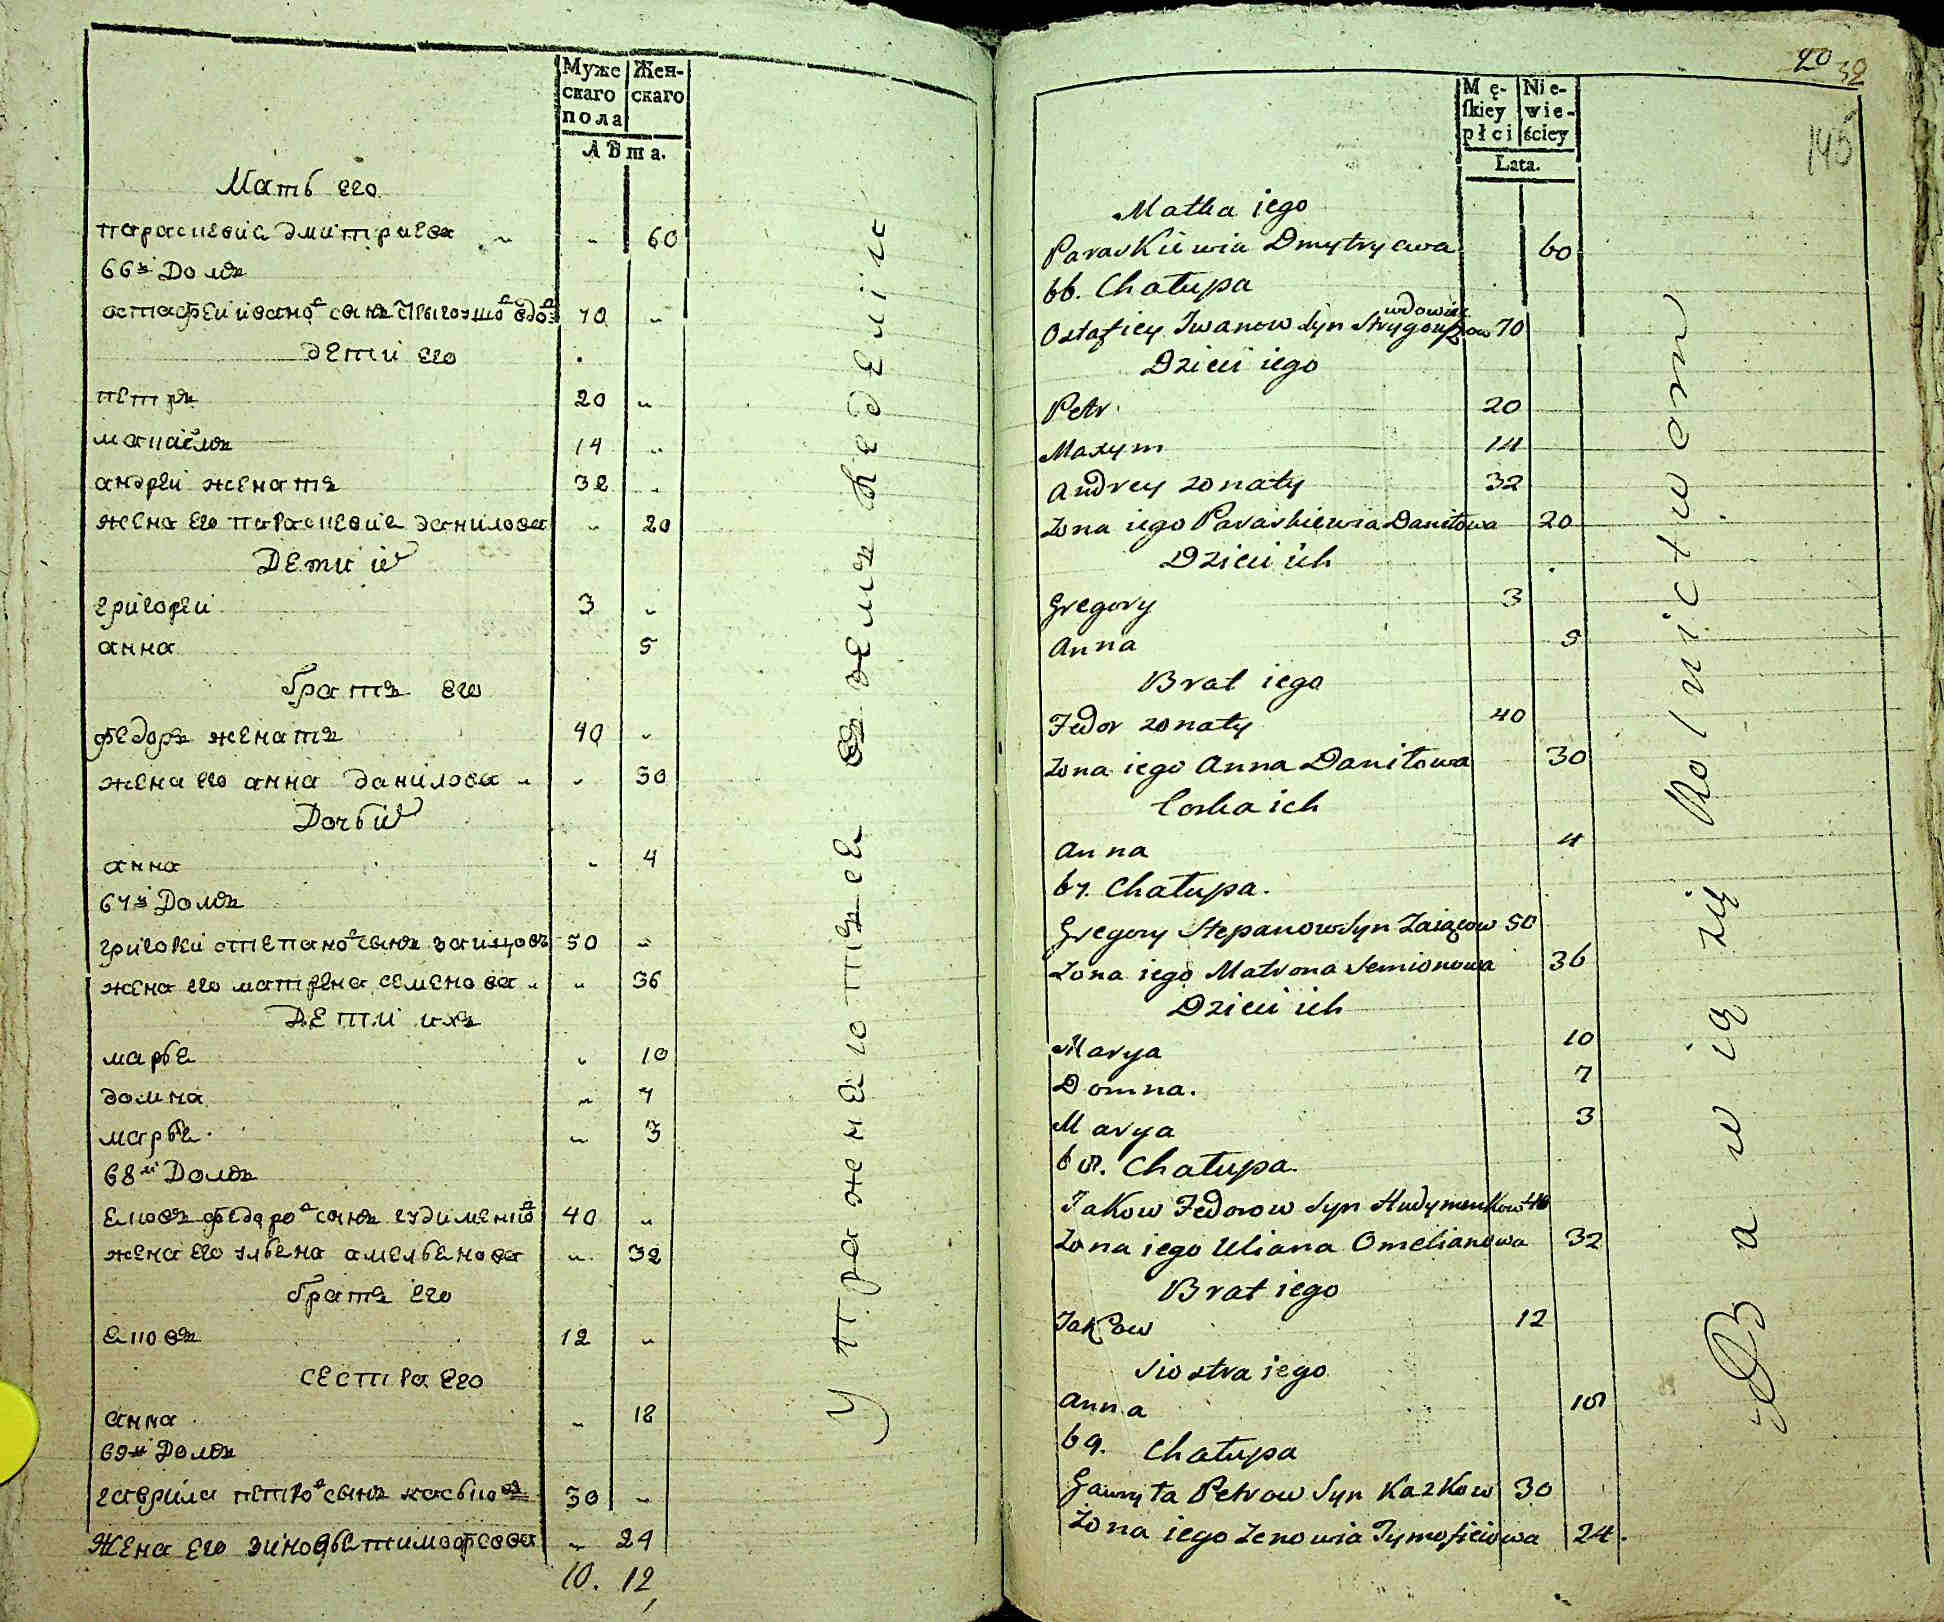 Муже
скаго
пола
Жен-
скаго
Лѣта.
Мать его
параскевия дмитриева " " 60
66й Домъ
остафеи ивановъ сынъ вдо 70 "
дети его
петръ 20 "
14 "
андреи женатъ 32 "
жена его параскевия данилова " 20
Дети их
григореи 3 "
анна 5
братъ его
федоръ женатъ 40 "
жена его анна данилова " " 30
Дочь их
анна " 4
67й Домъ
григореи степановъ сынъ заицовъ 50 "
жена его матрена семенова " " 36
Дети ихъ
марья " 10
домна " 7
марья " 3
68й Домъ
яковъ федоровъ сынъ гудименков 40 "
жена его ульяна амельянова " 32
братъ его
яковъ 12 "
сестра его
анна " 18
69й Домъ
гаврила петровъ сынъ каськовъ 30 "
жена его зиновья тимофеева " 24
10. 12,
Упражняютъся въ земледелии
20 32
145
Mę-
skiey
płci
Nie-
wie-
ściey
Lata.
Matka iego
Paraskiewia Dmytryewa 60
66. Chałupa
wdowiec
Ostafiey Iwanow Syn Strygouszow 70
Dzieci iego
Petr 20
Maxym 14
Andrey zonaty 32
Zona iego Paraskiewia Daniłowa 20
Dzieci ich
Gregory 3
Anna 5
Brat iego
Fedor zonaty 40
Zona iego Anna Daniłowa 30
Corka ich
Anna 4
67. Chałupa.
Gregory Stepanow Syn Zaiącow 50
Zona iego Matrona Semionowa 36
Dzieci ich
Marya 10
Domna. 7
Marya 3
68. Chałupa.
Jakow Fedorow Syn Hudymenkow 40
Zona iego Uliana Omelianowa 32
Brat iego
Jakow 12
Siostra iego
Anna 18
69. Chałupa
Gawryła Petrow Syn Kazkow 30
Zona iego Zenowia Tymofieiowa 24.
Bawią się Rolnictwem